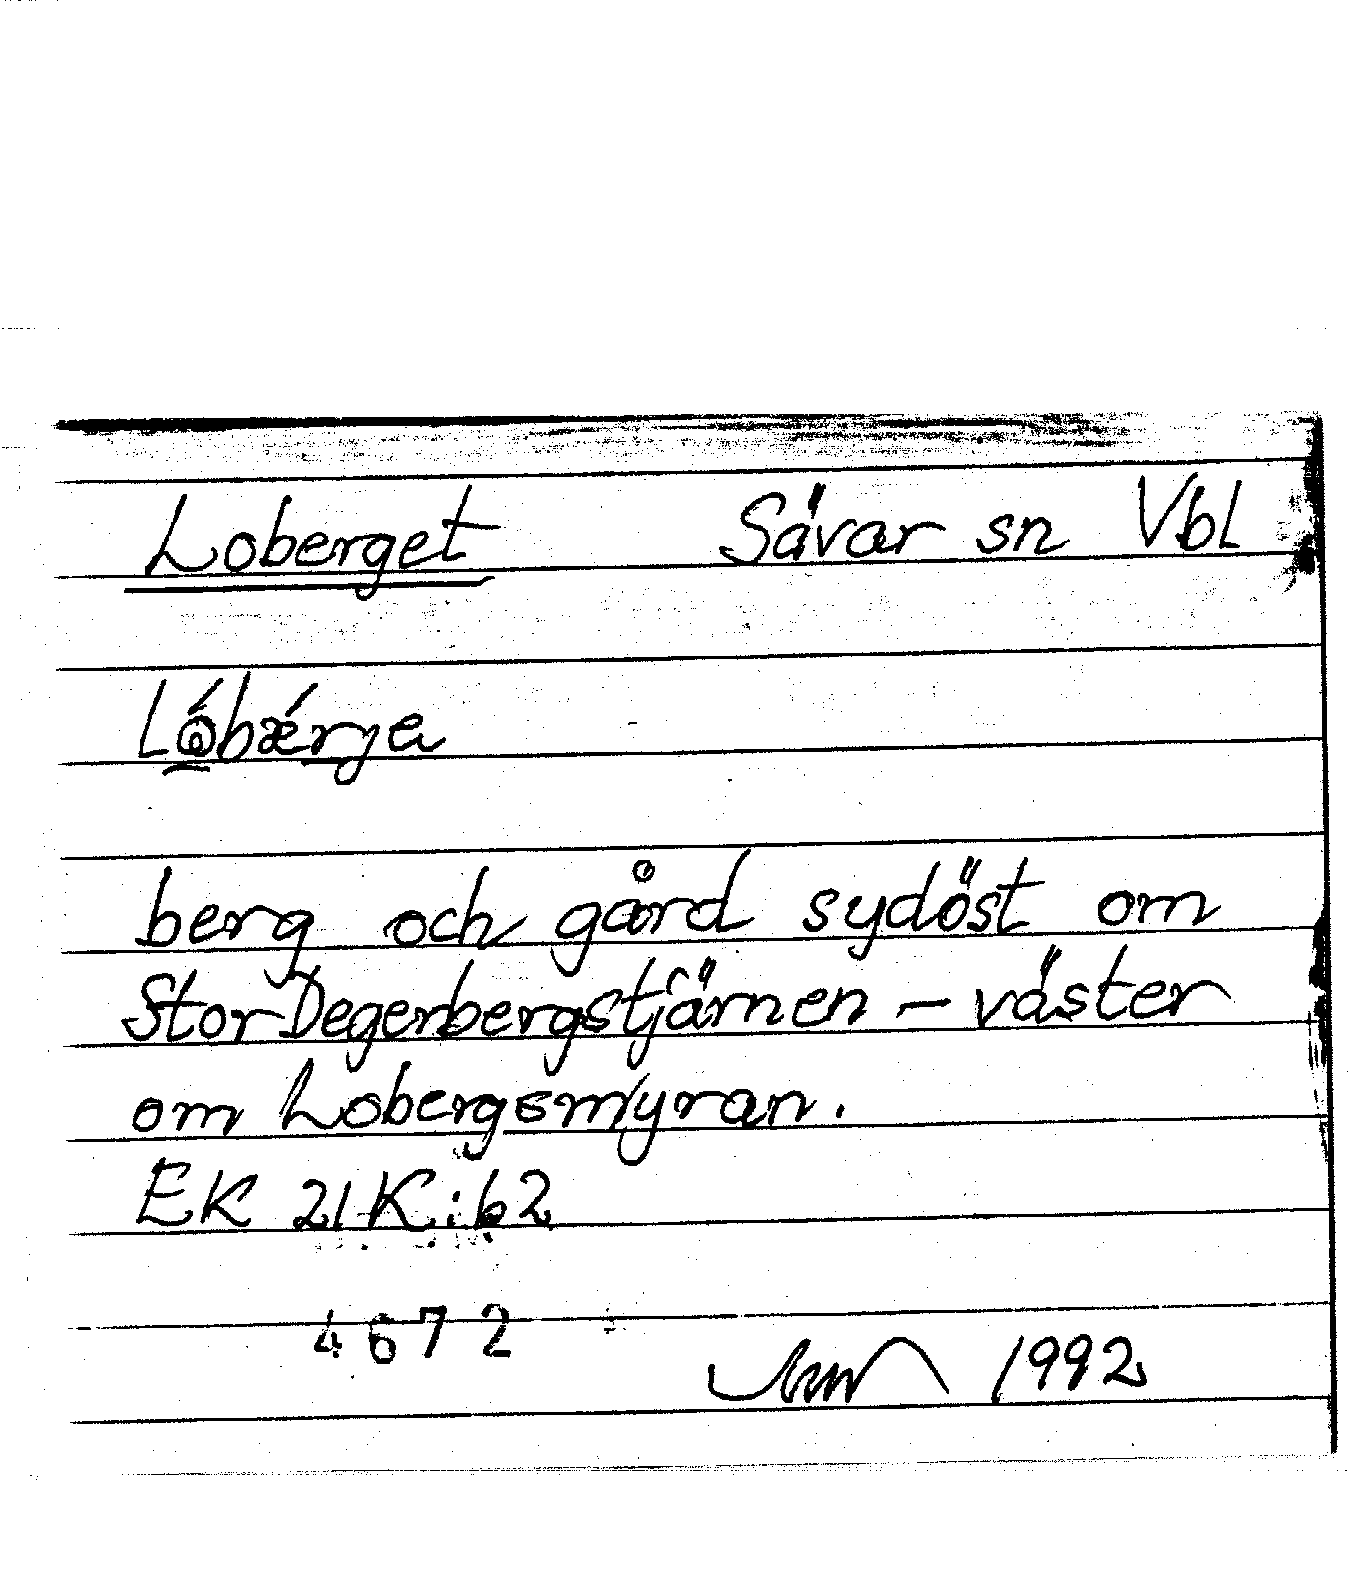 Loberget Sävar sn Vbl
berg och gård sydöst om
StorDegerbergstjärnen - väster
om Lobergsmyran.
EK 21K:62
4672
1992